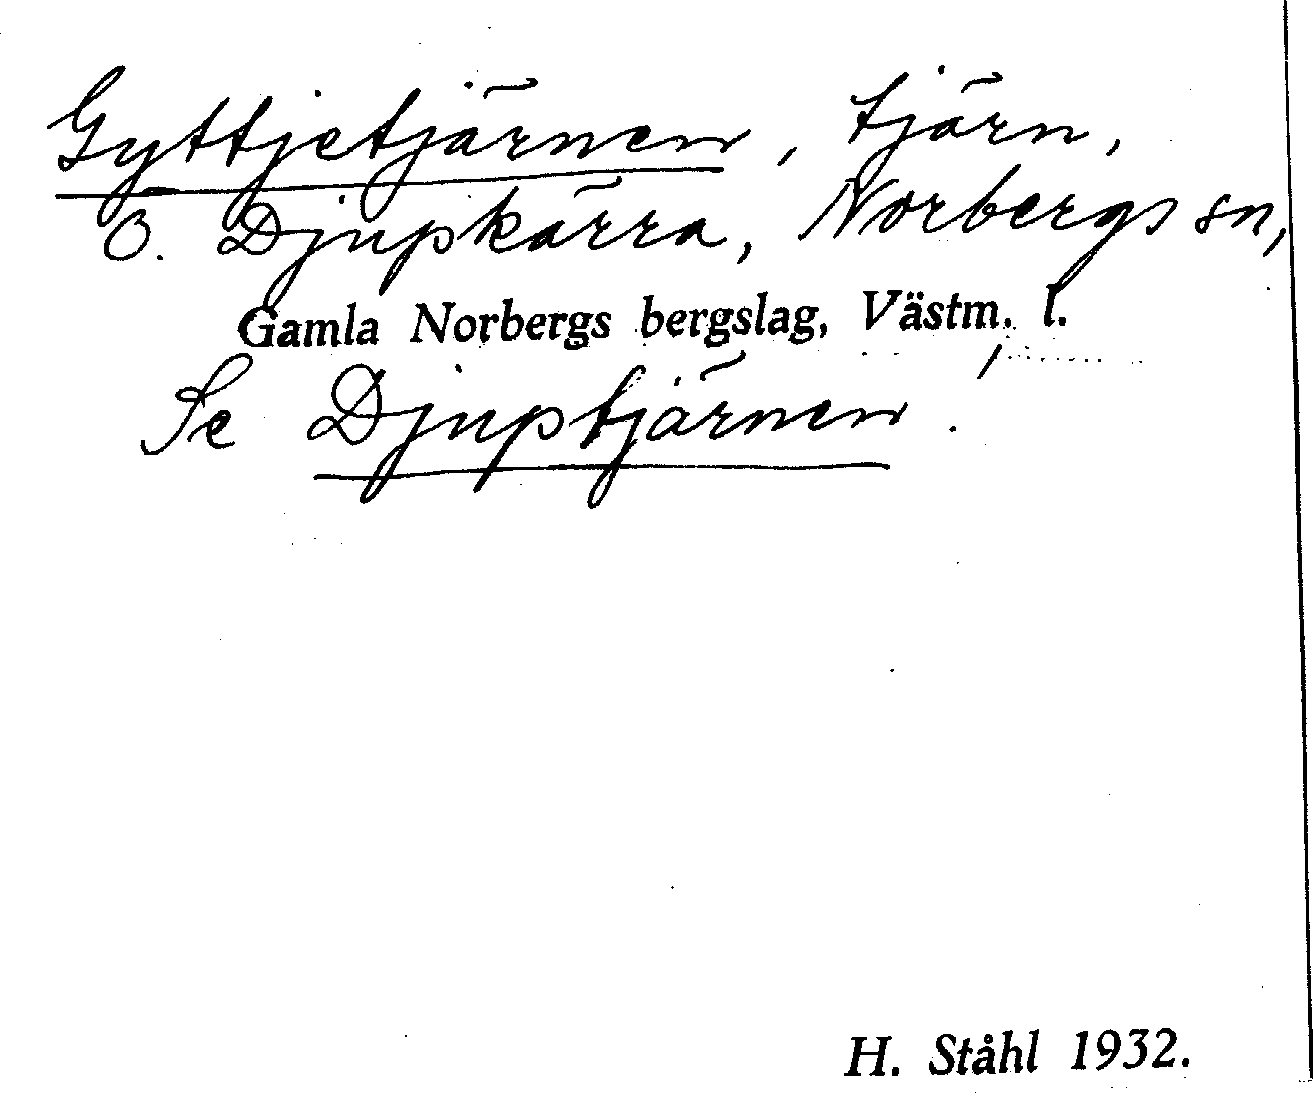 Gyttjetjärnen, tjärn,
O. Djupkärra, Norbergs sn,
Gamla Norbergs bergslag, Västm. l.
Se Djuptjärnen.
H. Ståhl 1932.